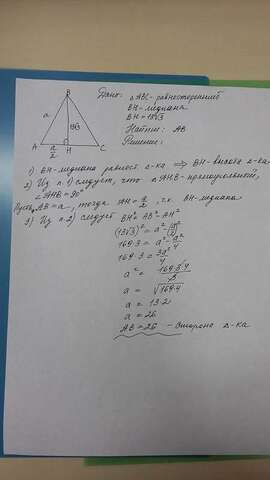 B
a
13√3
A
a/2
H
C
Дано: △ABC-равносторонний
BH-медиана
BH=13√3
Найти: AB
Решение:
1) BH-медиана равност. △-ка ⇒ BH-высота △-ка
2) Из п.1) следует, что △AHB-прямоугольный,
∠AHB=90°
Пусть AB=a, тогда AH=a/2, т.к. BH-медиана
3) Из п.2) следует BH²=AB²-AH²
(13√3)²=a²-(a/2)²
169·3=a²-a²/4
169·3=3a²/4
a²=169·3·4/3
a=√169·4
a=13·2
a=26
AB=26 - сторона △-ка